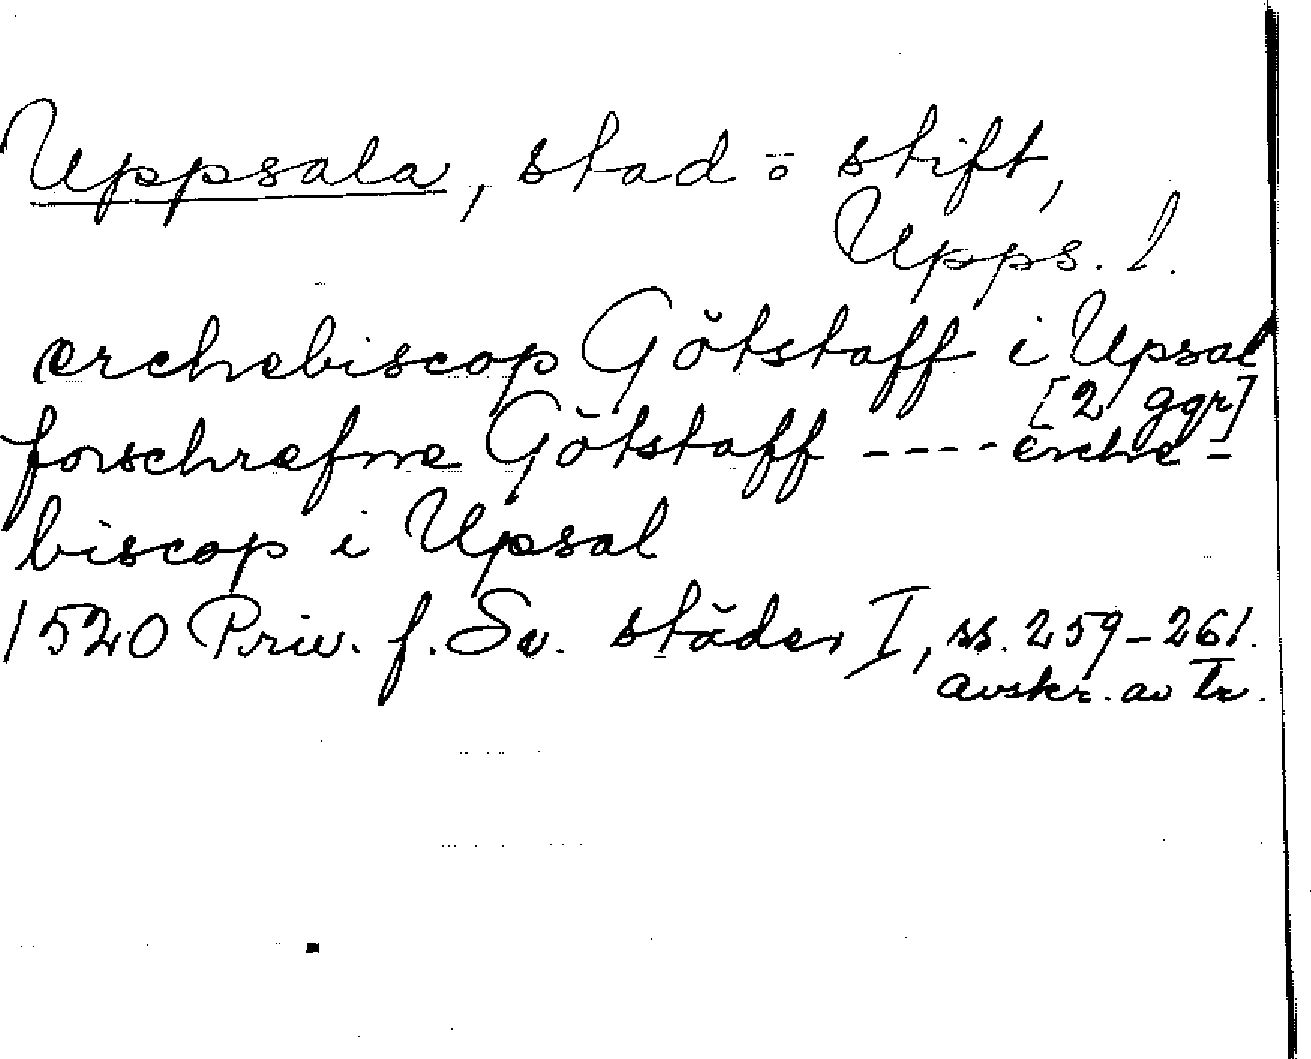 Uppsala, stad o stift,
Upps. l.
erchebiscop Götstaff i Upsal
[2 ggr]
forschrefne Götstaff ---- erche-
biscop i Upsal
1520 Priv. f. Sv. städer I, ss. 259-261.
avskr. av Tr.